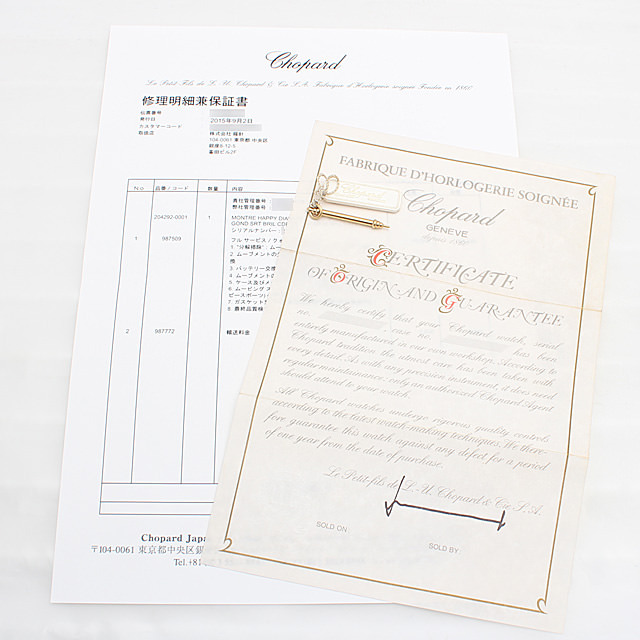 Chopard
Le Petit-Fils de L. U. Chopard & Cie S.A. Fabrique d'Horlogerie soignée Fondée en 1860
修理明細兼保証書
伝票番号
発行日 2015年9月2日
カスタマーコード
取扱店 株式会社
104-0061 東京都 中央区
銀座8-12-5
No. 品番/コード 数量 内容
貴社管理番号
弊社管理番号
204292-0001 1 MONTRE HAPPY DIA
GOND SRT BRIL CD
シリアルナンバー
1 987509 フル サービス/クォ
1. "分解掃除": ムー
2. ムーブメントの
換
3. バッテリー交換
4. ムーブメントの
5. ケース及びメ
6. ムービング ス
ピースポーツ/
7. ガスケット
8. 最終品質検
2 987772 輸送料金
Chopard Japa
〒104-0061 東京都中央区銀
Tel.+81
FABRIQUE D'HORLOGERIE SOIGNÉE
Chopard
GENEVE
depuis 1860
CERTIFICATE
OF ORIGIN AND GUARANTEE
We hereby certify that your Chopard watch, serial
no. case no. has been
entirely manufactured in our own workshop. According to
Chopard tradition the utmost care has been taken with
every detail. As with any precision instrument, it does need
regular maintainance; only an authorized Chopard Agent
should attend to your watch.
All Chopard watches undergo rigorous quality controls
according to the latest watch-making techniques. We there-
fore guarantee this watch against any defect for a period
of one year from the date of purchase.
Le Petit-fils de L. U. Chopard & Cie S.A.
SOLD ON
SOLD BY: